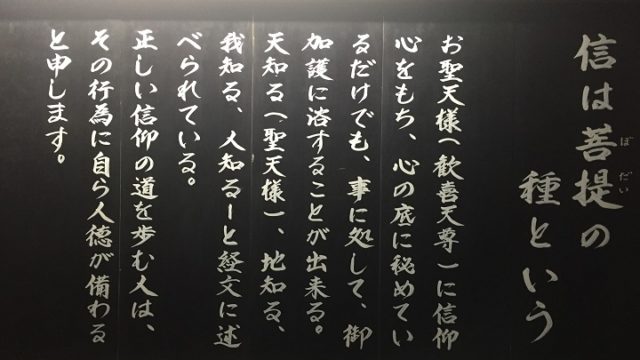 信は菩提の
ぼだい
種という
お聖天様(歓喜天尊)に信仰
心をもち、心の底に秘めてい
るだけでも、事に処して、御
加護に浴することが出来る。
天知る(聖天様)、地知る、
我知る、人知るーと経文に述
べられている。
正しい信仰の道を歩む人は、
その行為に自ら人徳が備わる
と申します。